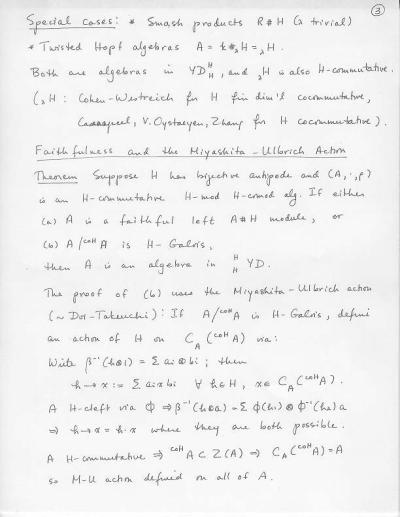 ③
Special cases: * Smash products R#H (λ trivial)
* Twisted Hopf algebras A = k#λH = λH.
Both are algebras in YD^H_H, and λH is also H-commutative.
(λH : Cohen-Westreich for H fin dim'l cocommutative,
V. Oystaeyen, Zhang for H cocommutative).
Faithfulness and the Miyashita-Ulbrich Action
Theorem Suppose H has bijective antipode and (A, ·, ρ)
is an H-commutative H-mod H-comod alg. If either
(a) A is a faithful left A#H module, or
(b) A/^{coH}A is H-Galois,
then A is an algebra in ^H_H YD.
The proof of (b) uses the Miyashita-Ulbrich action
(~ Doi-Takeuchi): If A/^{coH}A is H-Galois, define
an action of H on C_A(^{coH}A) via:
Write β⁻¹(h⊗1) = Σ ai⊗bi ; then
h→x := Σ ai x bi ∀ h∈H, x∈ C_A(^{coH}A).
A H-cleft via Φ ⇒ β⁻¹(h⊗a) = Σ Φ(h₁) ⊗ Φ⁻¹(h₂)a
⇒ h→x = h·x where they are both possible.
A H-commutative ⇒ ^{coH}A ⊂ Z(A) ⇒ C_A(^{coH}A) = A
so M-U action defined on all of A.